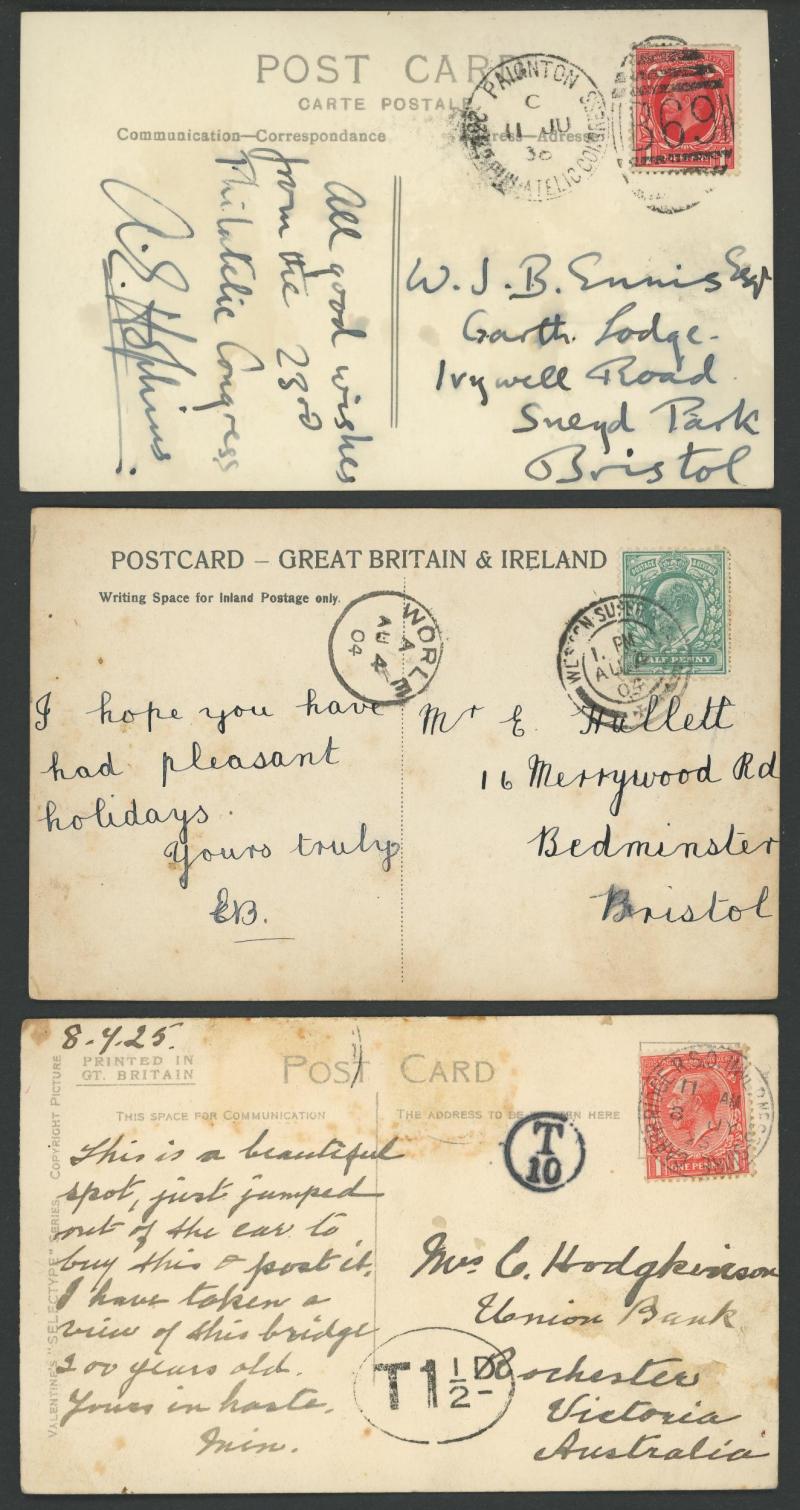 POST CARD
CARTE POSTALE
Communication—Correspondance
Address-Adresse
PAIGNTON
C
11 JU
36
23RD PHILATELIC CONGRESS
B69
All good wishes
from the 23rd
Philatelic Congress
A. E. Hopkins
W. J. B. Ennis Esqr
Garth Lodge.
Ivywell Road
Sneyd Park
Bristol
POSTCARD – GREAT BRITAIN & IRELAND
Writing Space for Inland Postage only.
WORLE
A
AU 4
04
WESTON-SUPER-MARE
1. PM
AU
04
HALF PENNY
I hope you have
had pleasant
holidays.
Yours truly
EB.
Mr E Hullett
16 Merrywood Rd
Bedminster
Bristol
8.7.25.
PRINTED IN
GT. BRITAIN
POST CARD
THIS SPACE FOR COMMUNICATION
THE ADDRESS TO BE WRITTEN HERE
VALENTINE'S "SELECTYPE" SERIES. COPYRIGHT PICTURE
T
10
11 AM
8 JY
ONE PENNY
This is a beautiful
spot, just jumped
out of the car to
buy this & post it.
I have taken a
view of this bridge
200 years old.
Yours in haste.
Min.
Mrs C. Hodgkinson
Union Bank
Rochester
Victoria
Australia
T 1 1/2 D